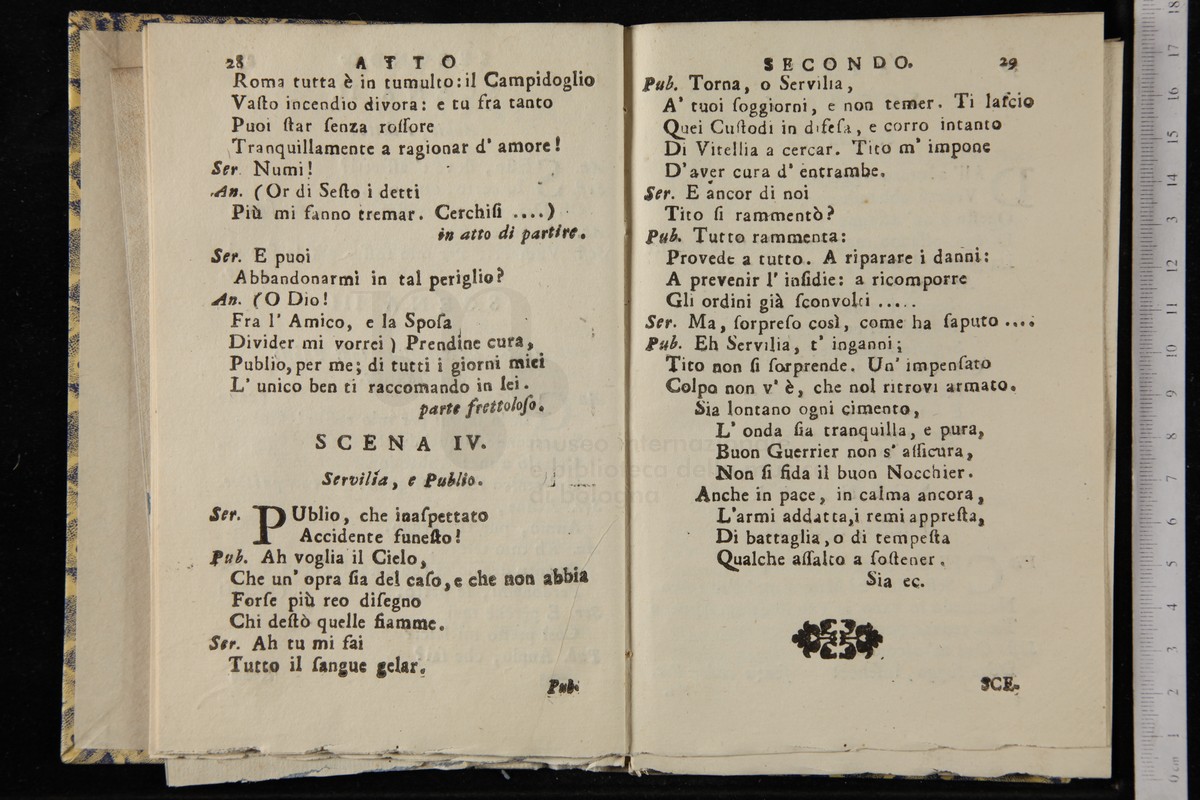 28 ATTO
Roma tutta è in tumulto: il Campidoglio
Vaſto incendio divora: e tu fra tanto
Puoi ſtar ſenza roſſore
Tranquillamente a ragionar d' amore!
Ser. Numi!
An. (Or di Seſto i detti
Più mi fanno tremar. Cerchiſi ....)
in atto di partire.
Ser. E puoi
Abbandonarmi in tal periglio?
An. (O Dio!
Fra l' Amico, e la Spoſa
Divider mi vorrei) Prendine cura,
Publio, per me; di tutti i giorni miei
L' unico ben ti raccomando in lei.
parte frettoloſo.
SCENA IV.
Servilia, e Publio.
Ser. PUblio, che inaſpettato
Accidente funeſto!
Pub. Ah voglia il Cielo,
Che un' opra ſia del caſo, e che non abbia
Forſe più reo diſegno
Chi deſtò quelle fiamme.
Ser. Ah tu mi fai
Tutto il ſangue gelar.
Pub.
SECONDO. 29
Pub. Torna, o Servilia,
A' tuoi ſoggiorni, e non temer. Ti laſcio
Quei Cuſtodi in difeſa, e corro intanto
Di Vitellia a cercar. Tito m' impone
D'aver cura d' entrambe.
Ser. E ancor di noi
Tito ſi rammentò?
Pub. Tutto rammenta:
Provede a tutto. A riparare i danni:
A prevenir l' inſidie: a ricomporre
Gli ordini già ſconvolti .....
Ser. Ma, ſorpreſo così, come ha ſaputo ....
Pub. Eh Servilia, t' inganni;
Tito non ſi ſorprende. Un' impenſato
Colpo non v' è, che nol ritrovi armato.
Sia lontano ogni cimento,
L' onda ſia tranquilla, e pura,
Buon Guerrier non s' aſſicura,
Non ſi fida il buon Nocchier.
Anche in pace, in calma ancora,
L'armi addatta, i remi appreſta,
Di battaglia, o di tempeſta
Qualche aſſalto a ſoſtener.
Sia ec.
SCE-
museo internazionale
e biblioteca della
di bologna